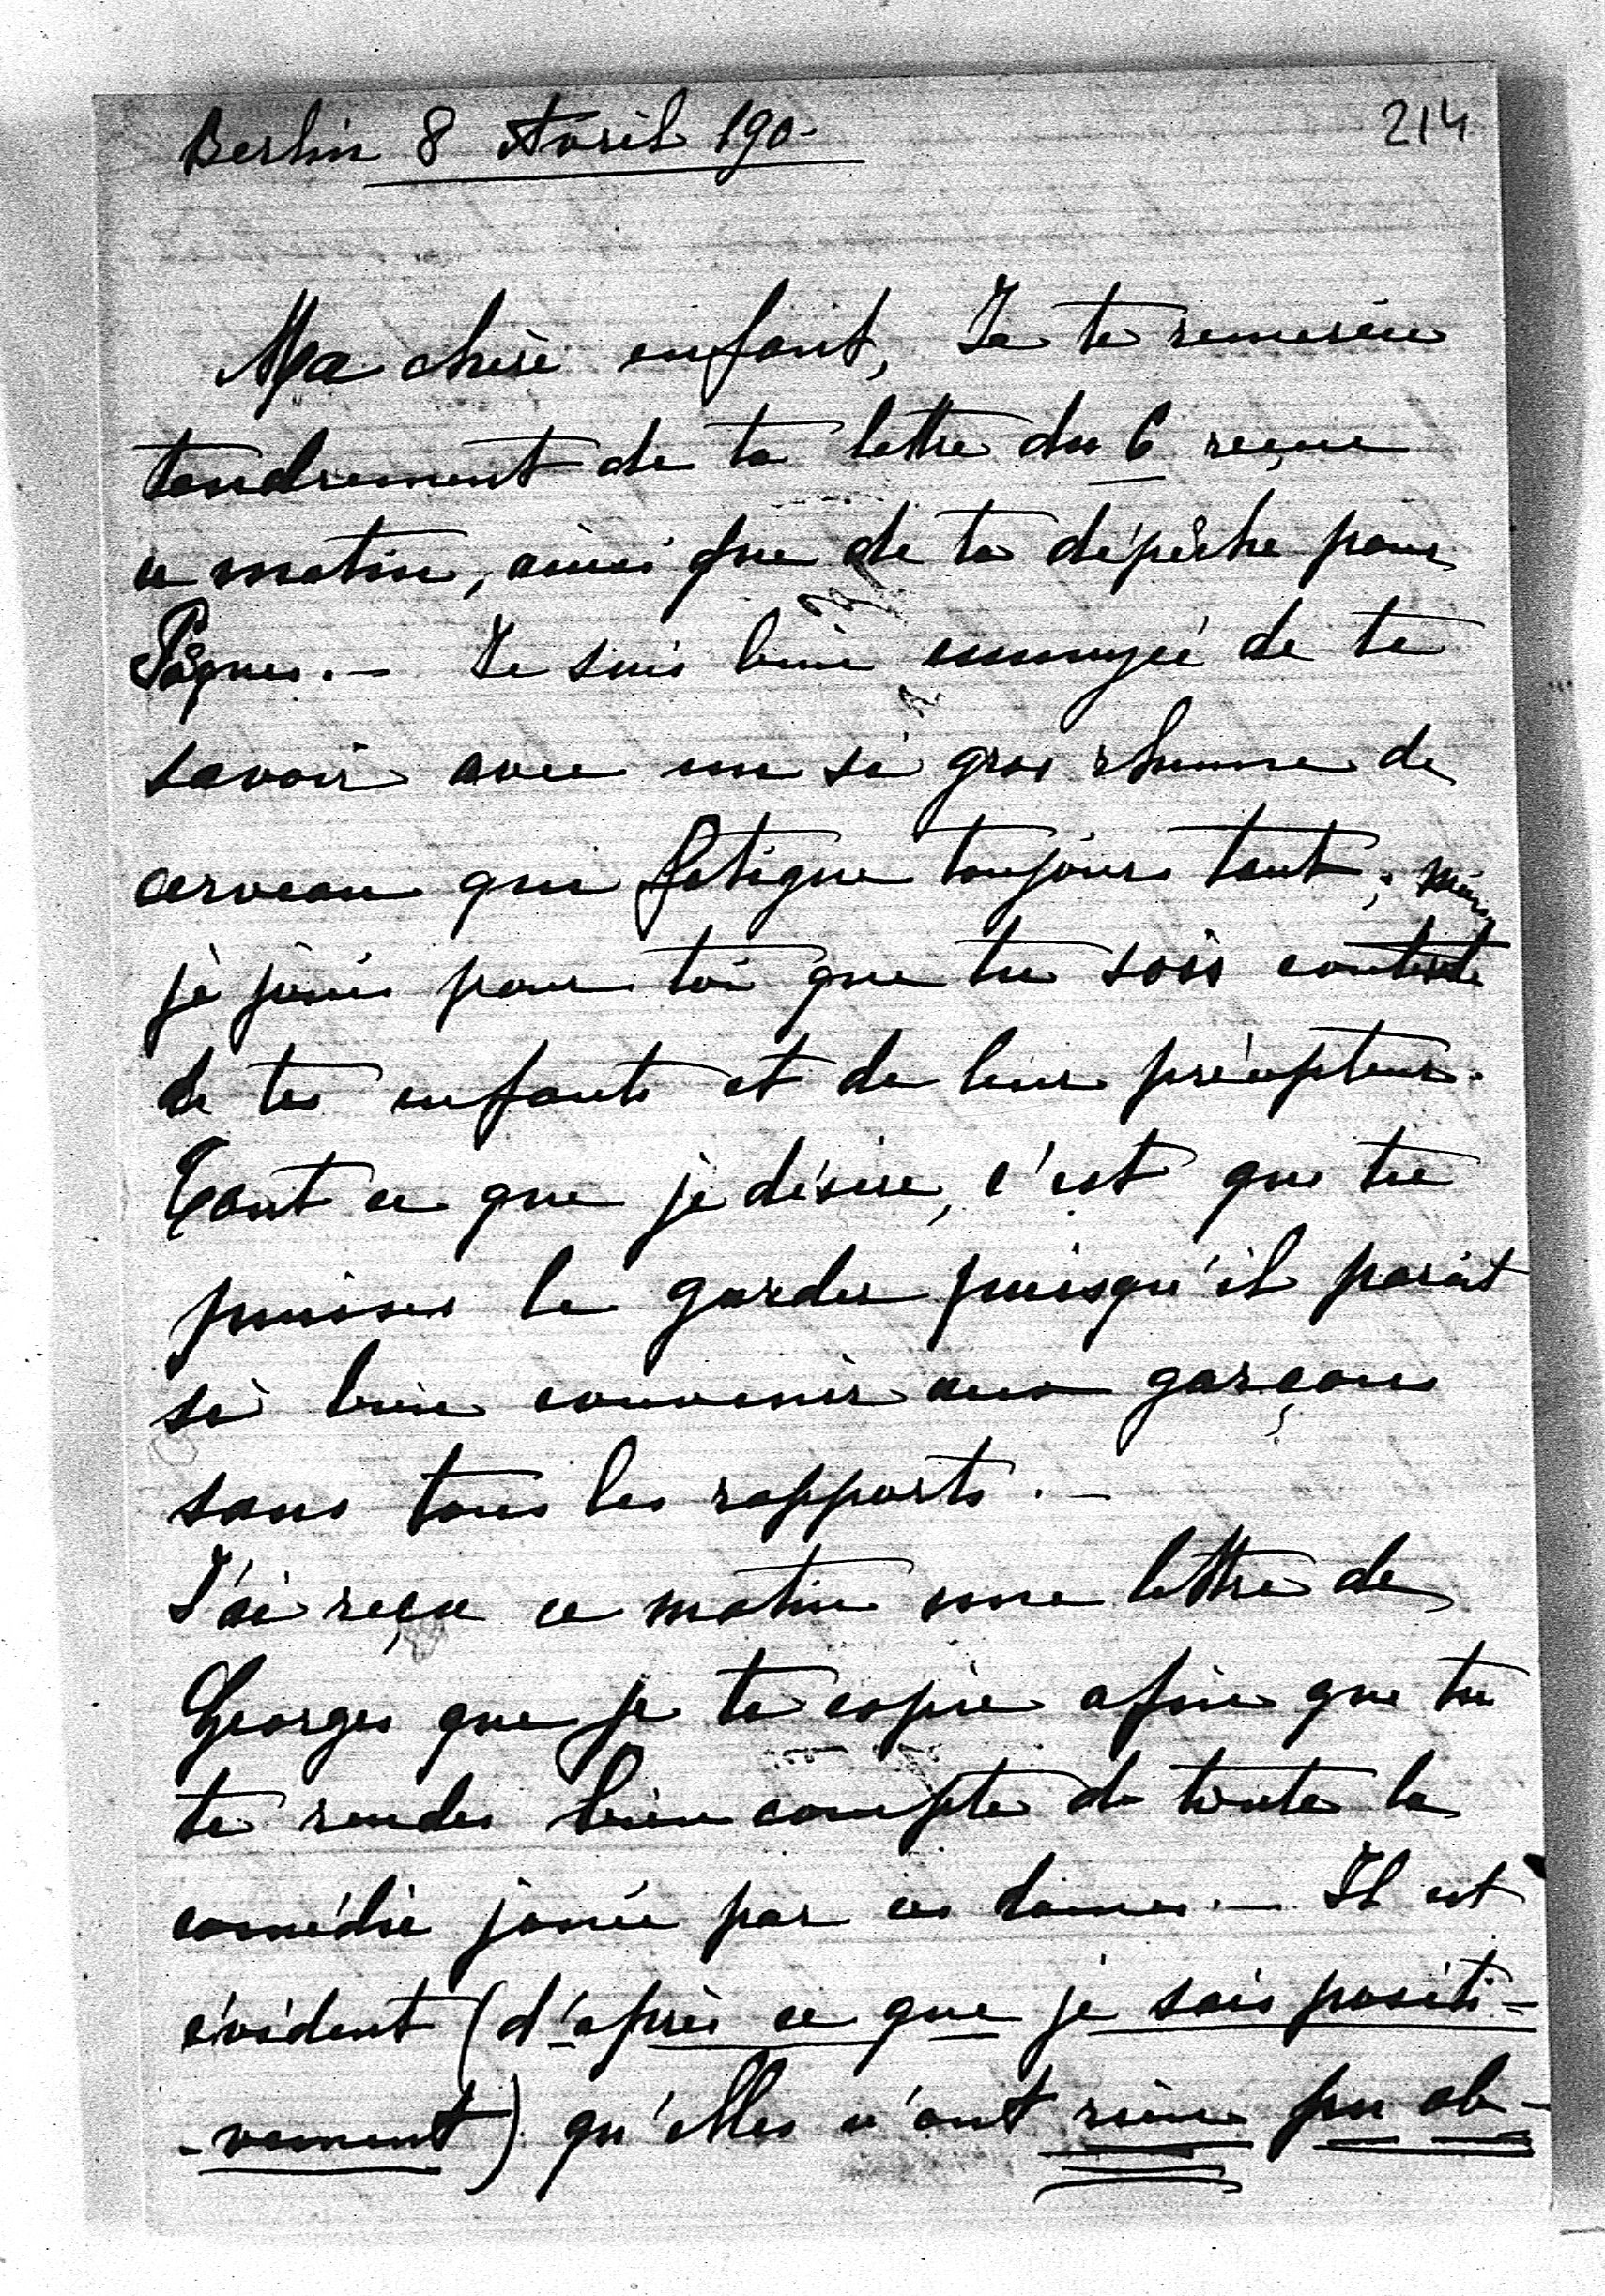 Berlin 8 Avril 190-
214
Ma chère enfant, Je te remercie
tendrement de ta lettre du 6 reçue
ce matin, ainsi que de ta dépêche pour
Pâques. — Je suis bien ennuyée de te
savoir avec un si gros rhume de
cerveau qui fatigue toujours tant; mais
je jouis pour toi que tu sois contente
de tes enfants et de leur précepteur.
Tout ce que je désire, c'est que tu
puisses le garder puisqu'il paraît
si bien convenir aux garçons
sous tous les rapports. —
J'ai reçu ce matin une lettre de
Georges que je te copie afin que tu
te rendes bien compte de toute la
comédie jouée par ces dames. — Il est
évident (d'après ce que je sais positi-
-vement) qu'elles n'ont rien pu ob-